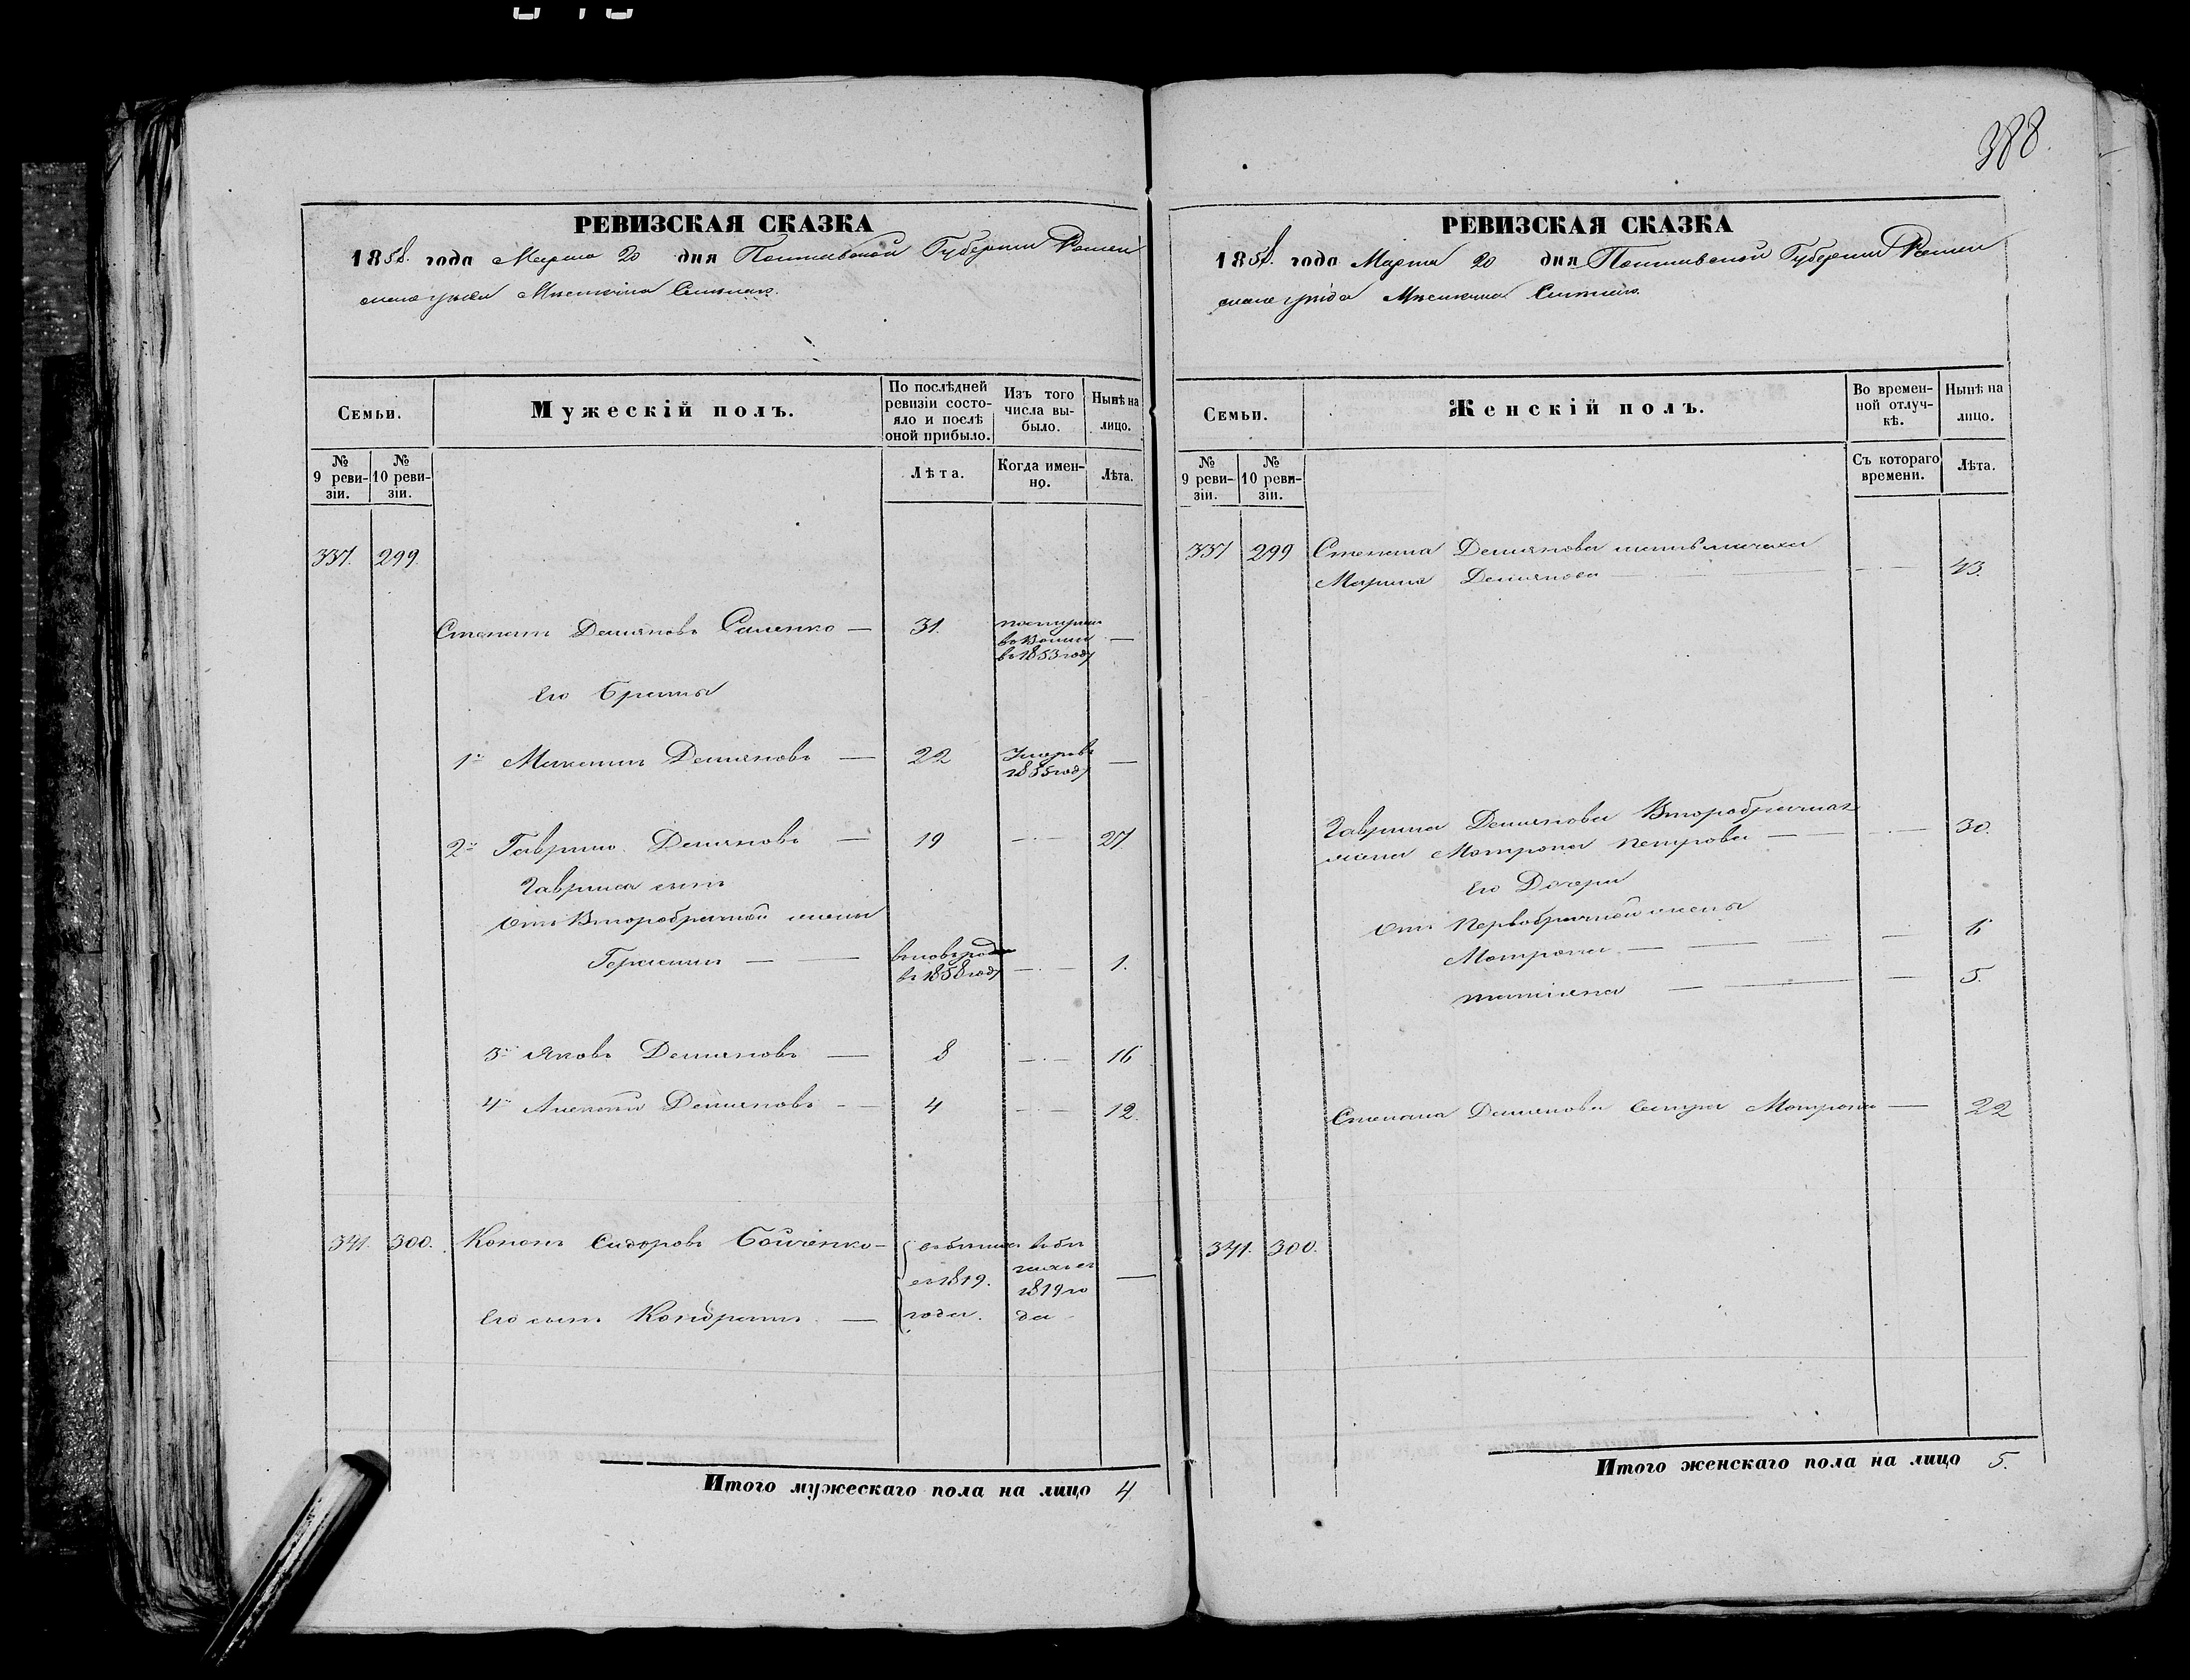 388.
РЕВИЗСКАЯ СКАЗКА
1858. года Марта 20 дня Полтавской Губернии Ромен
скаго уезда Местечка Смелаго.
Семьи.
Мужескій полъ.
По послѣдней ревизіи состо-
яло и послѣ
оной прибыло.
Изъ того
числа вы-
было.
Нынѣ на
лицо.
№
9 реви-
зіи.
№
10 реви-
зіи.
Лѣта.
Когда имен-
но.
Лѣта.
337. 299.
Степанъ Демяновъ Саленко — 31.
въ 1853 году —
Его Братья
1й Демяновъ — 22 Умеръ въ
1855 году —
2й Гаврило Демяновъ — 19 — 27
Гаврила сынъ
отъ Второбрачной жены
Герасимъ — вновь рож
въ 1858 году — 1.
3й Яковъ Демяновъ — 8 — 16
4й Алексей Демяновъ — 4 — 12.
341. 300. Кононъ Сидоровъ Бойченко —
съ 1819.
года.
1819 го
да —
Его сынъ Кондратъ —
Итого мужескаго пола на лицо 4
РЕВИЗСКАЯ СКАЗКА
1858. года Марта 20 дня Полтавской Губернии Ромен
скаго уезда Местечка Смелаго.
Семьи.
Женскій полъ.
Во времен-
ной отлуч-
кѣ.
Нынѣ на
лицо.
№
9 реви-
зіи.
№
10 реви-
зіи.
Съ котораго
времени.
Лѣта.
337 299 Степана Демянова мать мачеха
Марина Демянова — 43.
Гаврила Демянова Второбрачная
жена Мотрона Петрова — 30.
Его Дочери
отъ Первобрачной жены
Мотрона — 6
татіяна — 5.
Степана Демянова сестра Мотрона — 22
341. 300.
Итого женскаго пола на лицо 5.